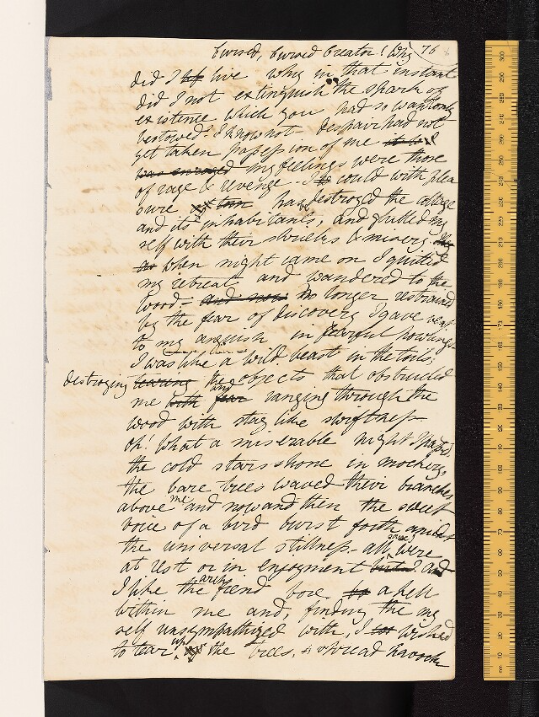 Cursed, Cursed Creator! Why 76
did I live why in that instant
did I not extinguish the spark of
existence which you had so wantonly
bestowed? I know not - despair had not
yet taken possession of me
my feelings were those
of rage & revenge - I could with plea
sure have destroyed the cottage
and its inhabitants, and glutted my
self with their shrieks & misery.
when night came on I quitted
my retreat and wandered to the
wood - and now no longer restrained
by the fear of discovery I gave vent
to my anguish in fearful howlings
I was like a wild beast in the toils
destroying tearing the objects that obstructed
me with and ranging through the
wood with stag like swiftness
oh! What a miserable night I passed
the cold stars shone in mockery,
the bare trees waved their branches
above me and now and then the sweet
voice of a bird burst forth amidst
the universal stillness - all save I were
at rest or in enjoyment and
I like the arch fiend bore a hell
within me and, finding the my
self unsympathized with, I wished
to tear up the trees, & spread havock